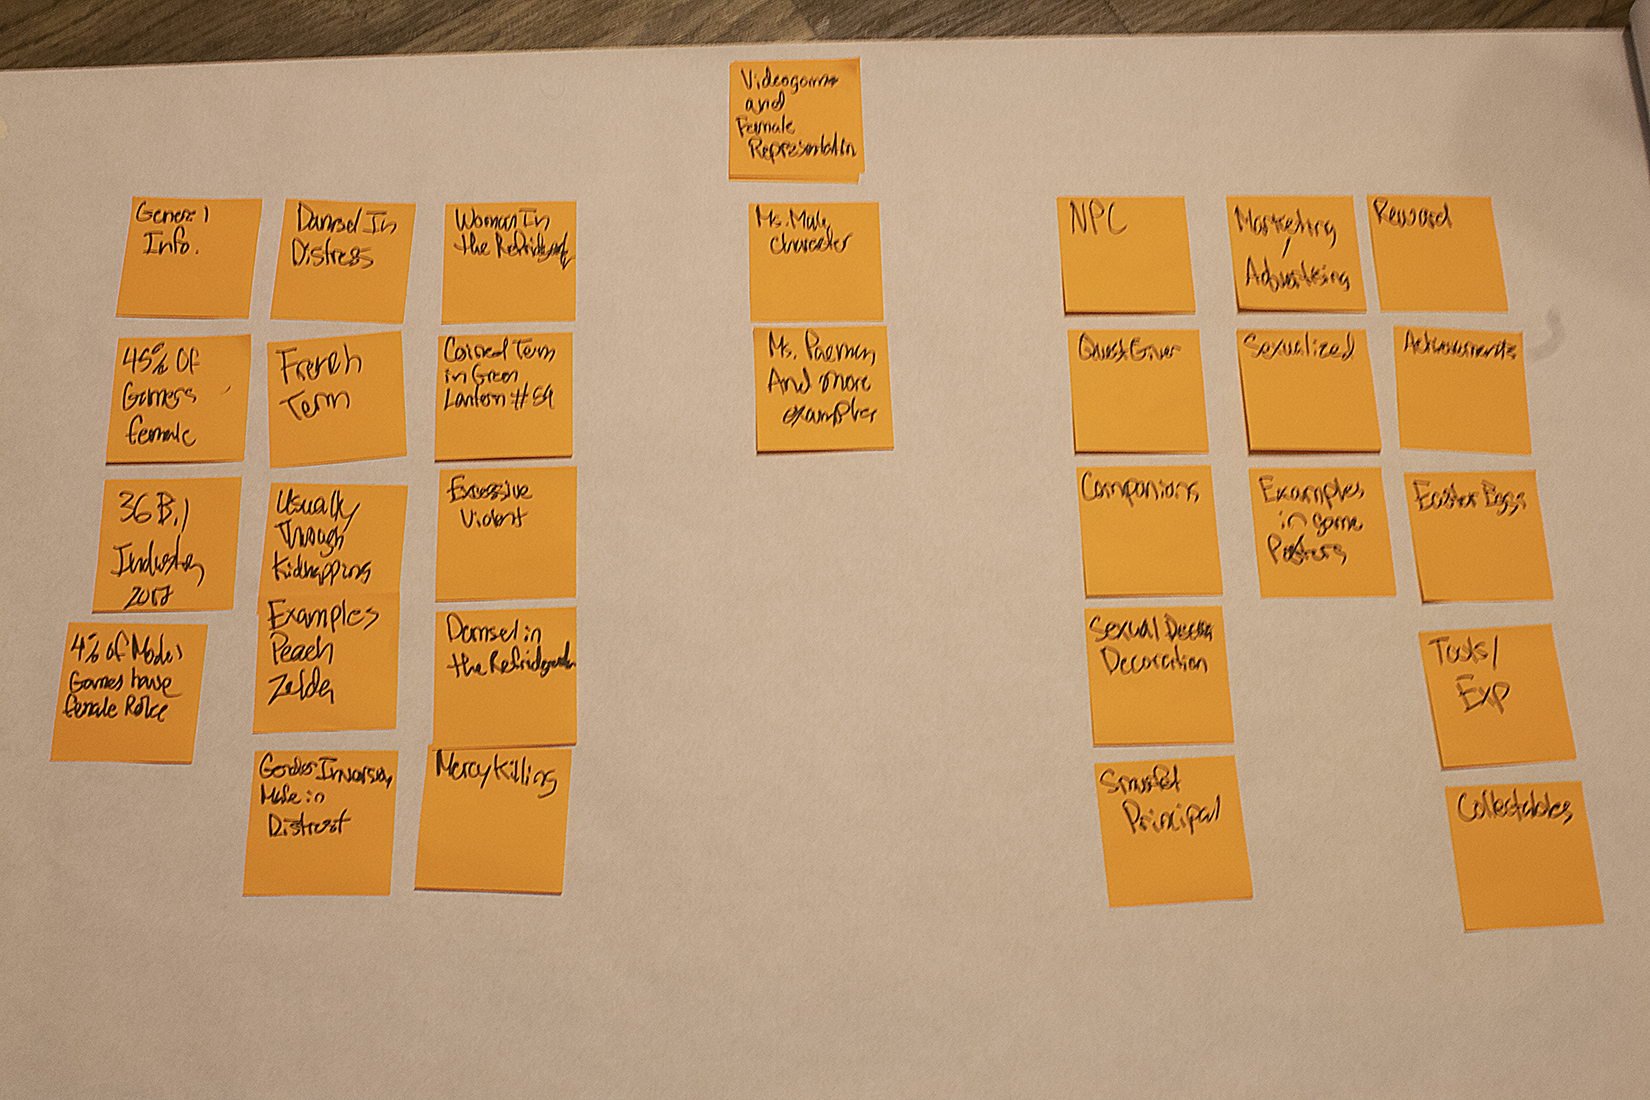 Videogame
and
Female
Representation
General
Info.
45% Of
Gamers
female
36 Bil
Industry
2017
4% of Model
Games have
female Roles
Damsel In
Distress
French
Term
Usually
Through
Kidnapping
Examples
Peach
Zelda
Gender Inversion
Male in
Distress
Woman In
the Refridgerator
Coined Term
in Green
Lantern # 54
Excessive
Violent
Damsel in
the Refridgerator
Mercy Killing
Ms. Male
Character
Ms. Pacman
And more
examples
NPC
Quest Giver
Companions
Sexual
Decoration
Smurfet
Principal
Marketing
/
Advertising
Sexualized
Examples
in game
Posters
Reward
Achievements
Easter Eggs
Tools/
Exp
Collectables